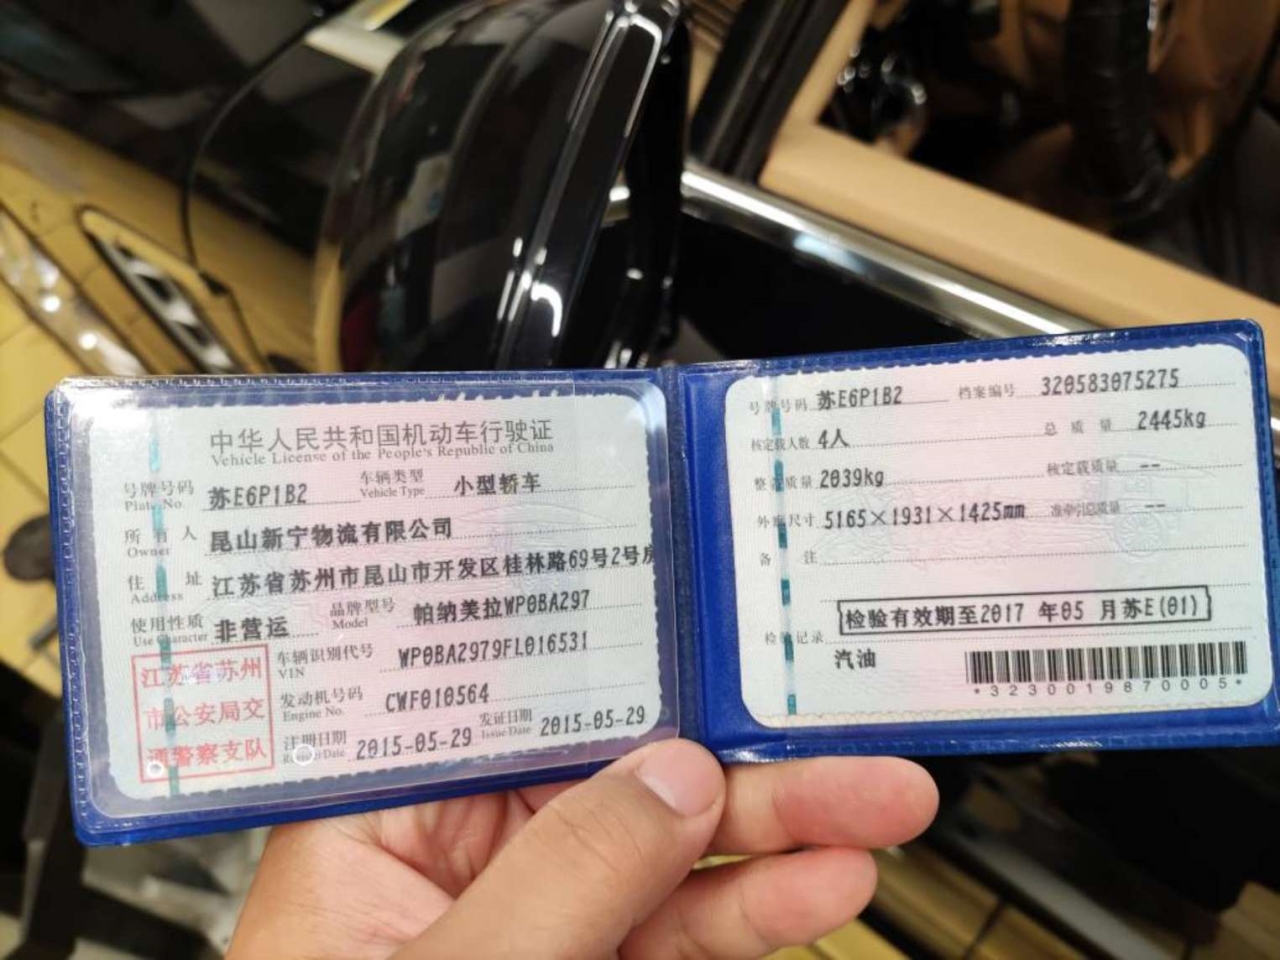 中华人民共和国机动车行驶证
Vehicle License of the People's Republic of China
号牌号码 苏E6P1B2 车辆类型 小型轿车
Plate No. Vehicle Type
所有人 昆山新宁物流有限公司
Owner
住址 江苏省苏州市昆山市开发区桂林路69号2号房
Address
使用性质 非营运 品牌型号 帕纳美拉WP0BA297
Use Character Model
江苏省苏州
市公安局交
通警察支队
车辆识别代号 WP0BA2979FL016531
VIN
发动机号码 CWF010564
Engine No.
注册日期 2015-05-29 发证日期 2015-05-29
Issue Date
号牌号码 苏E6P1B2 档案编号 320583075275
核定载人数 4人 总质量 2445kg
整备质量 2039kg 核定载质量 --
外廓尺寸 5165×1931×1425mm 准牵引总质量 --
备注
检验有效期至2017 年05 月苏E(01)
检验记录
汽油
*3230019870005*